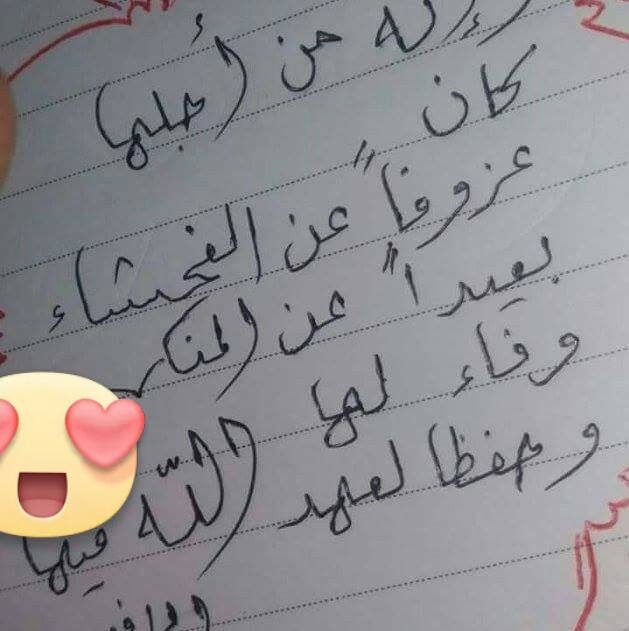 وإنه من أجلها
كان
عزوفاً عن الفحشاء
بعيداً عن المنكر
وفاء لها
وحفظا لعهد الله فيها